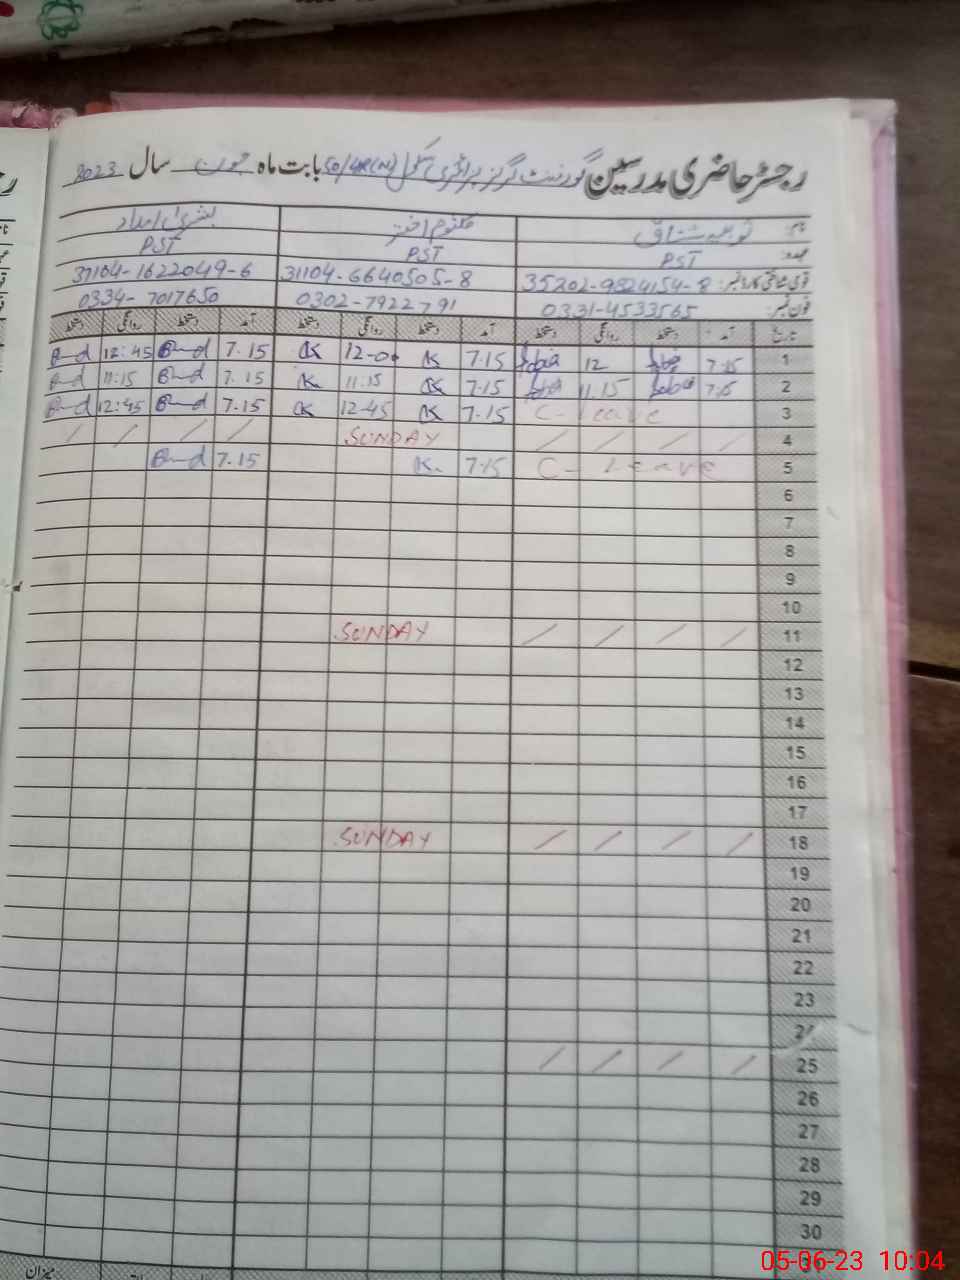 رجسٹر حاضری مدرسین گورنمنٹ گرلز پرائمری سکول 50/4R(N) بابت ماہ جون سال 2023
نام:
کلثوم اختر
بشریٰ امداد
عہدہ: PST PST PST
قومی شناختی کارڈ نمبر: 35202-9824154-8 31104-6640505-8 31104-1622049-6
فون نمبر: 0331-4533565 0302-7922791 0334-7017650
تاریخ آمد دستخط روانگی دستخط آمد دستخط روانگی دستخط آمد دستخط روانگی دستخط
1 7.15 12 7.15 K 12-00 K 7.15 12:45
2 7.15 11.15 7.15 K 11.15 K 7.15 11:15
3 C-leave 7.15 K 12-45 K 7.15 12:45
4 SUNDAY
5 C-Leave 7.15 K. 7.15
6
7
8
9
10
11 SUNDAY
12
13
14
15
16
17
18 SUNDAY
19
20
21
22
23
24
25
26
27
28
29
30
میزان
05-06-23 10:04